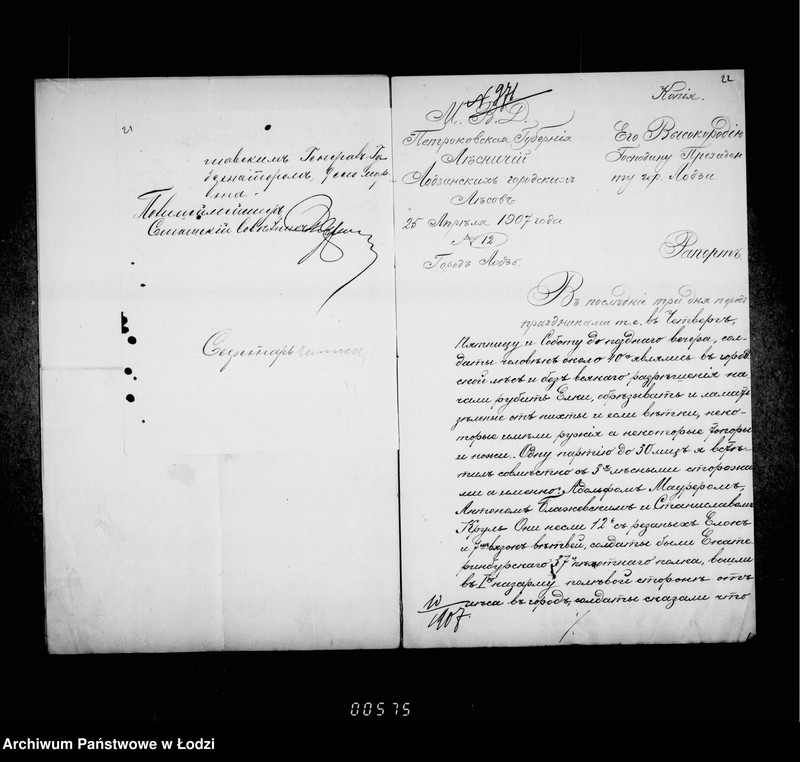 21
гиевскимъ Генералъ Гу-
бернаторомъ,
Сатскій Совѣтникъ
Секретарь
22
№ 971
Копія.
М. В. Д.
Петроковская Губернія
Лѣсничій
Лодзинскихъ городскихъ
Лѣсовъ
25 Апрѣля 1907 года
№ 12
Городъ Лодзь.
Его Высокородію
Господину Президен-
ту гр. Лодзи
Рапортъ.
Въ послѣдніе три дня передъ
праздниками т. е. въ Четвергъ,
Пятницу и Соботу до поздняго вечера, сол-
даты человѣкъ около 40 являлись въ город-
ской лѣсъ и безъ всякаго разрѣшенія на-
чали рубить Елки, обрѣзывать и ламать
зеленые отъ пихты и ели вѣтки, неко-
торые имѣли ружія а некоторые топоры
и ножи. Одну партію до 30 лицъ я встрѣ-
тилъ совмѣстно съ 3мя лѣсными сторожа-
ми а именно: Адольфомъ Мауреромъ,
Антономъ Блажевскимъ и Станиславомъ
Круль Они несли 12ь срезаныхъ Елокъ
и 7 вязокъ вѣтвей, солдаты были Екате-
ринбурскаго 37 пѣхотнаго полка, вошли
въ Iю казарму по лѣвой сторонѣ отъ
лѣса въ городъ, солдаты сказали что
10/1907
./.
00575
Archiwum Państwowe w Łodzi